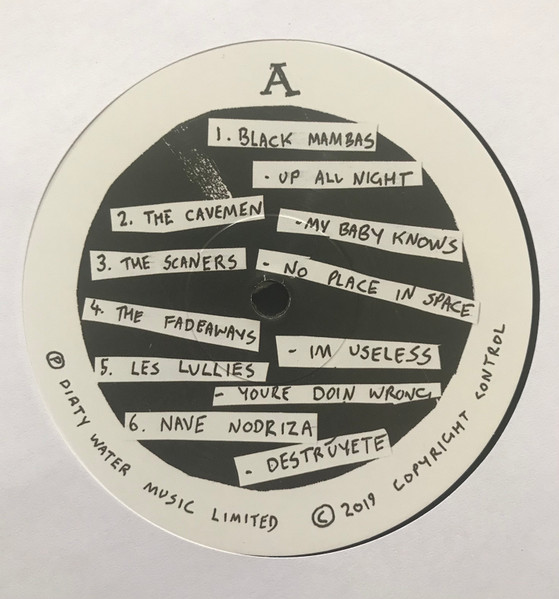 A
1. BLACK MAMBAS
- UP ALL NIGHT
2. THE CAVEMEN
- MY BABY KNOWS
3. THE SCANERS
- NO PLACE IN SPACE
4. THE FADEAWAYS
- IM USELESS
5. LES LULLIES
- YOURE DOIN WRONG
6. NAVE NODRIZA
- DESTRÚYETE
℗ DIRTY WATER MUSIC LIMITED © 2019 COPYRIGHT CONTROL